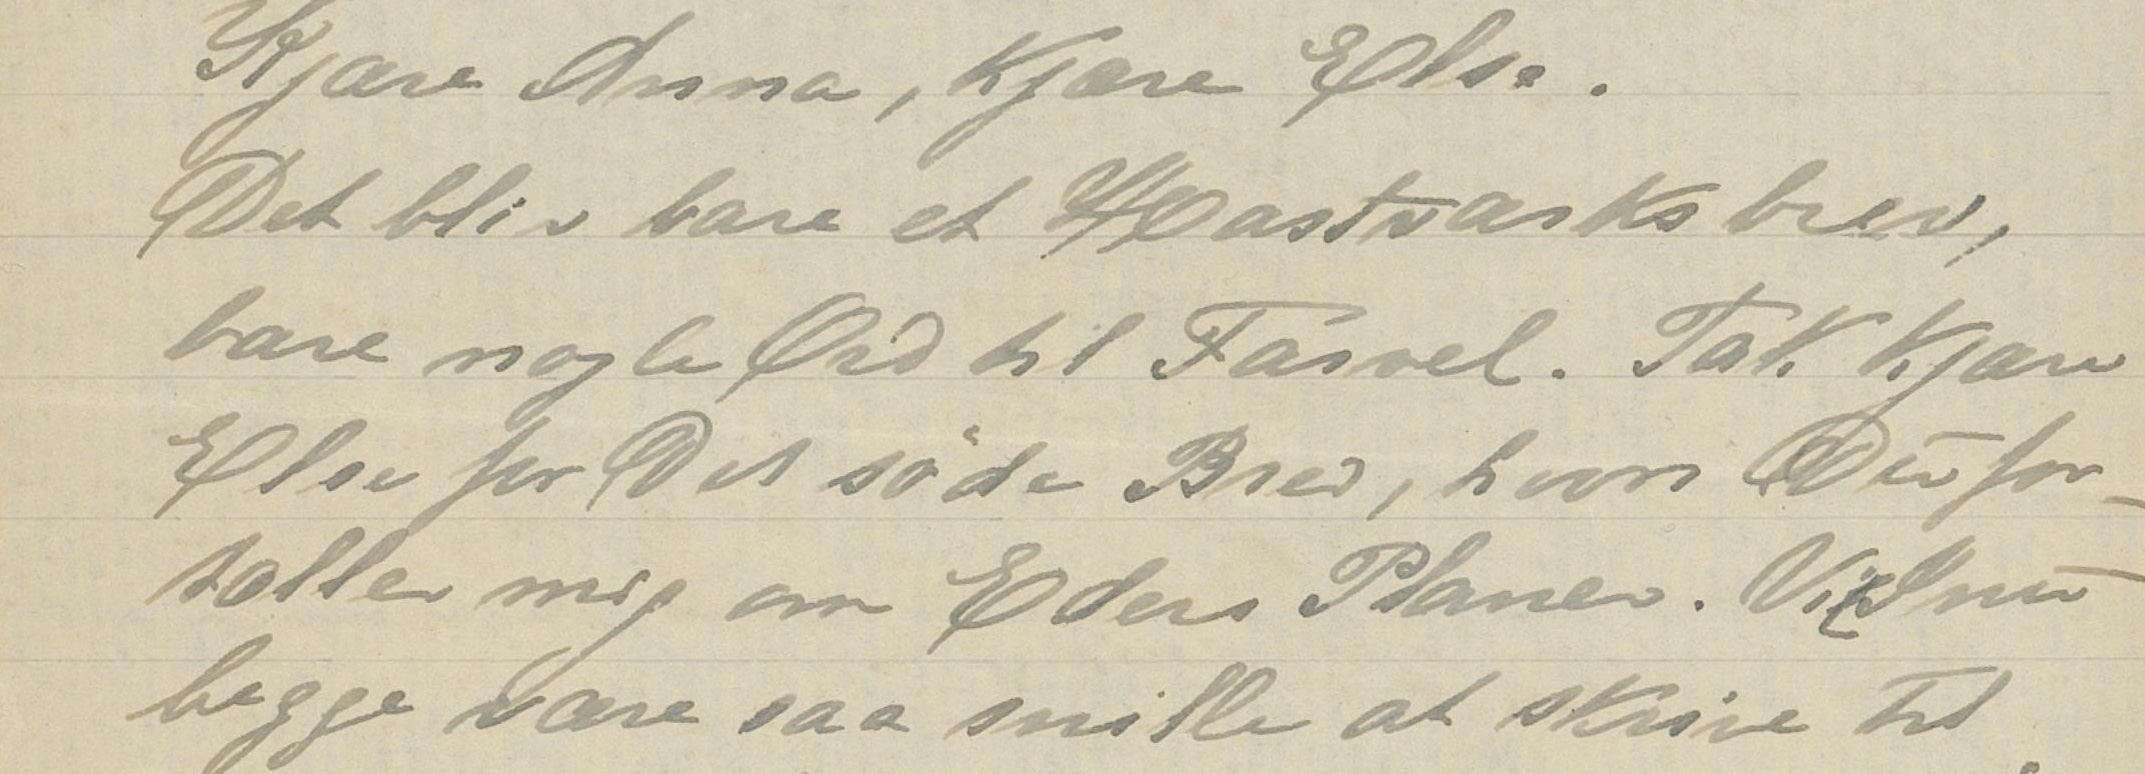 Kjære Anna, Kjære Else.
Det bliv bare et Hastværksbrev,
bare nogle Ord til Farvel. Tak Kjære
Else for Det söde Brev, hvori Du for-
tæller mig om Eders Planer. Vil I nu
begge være saa snille at skrive til